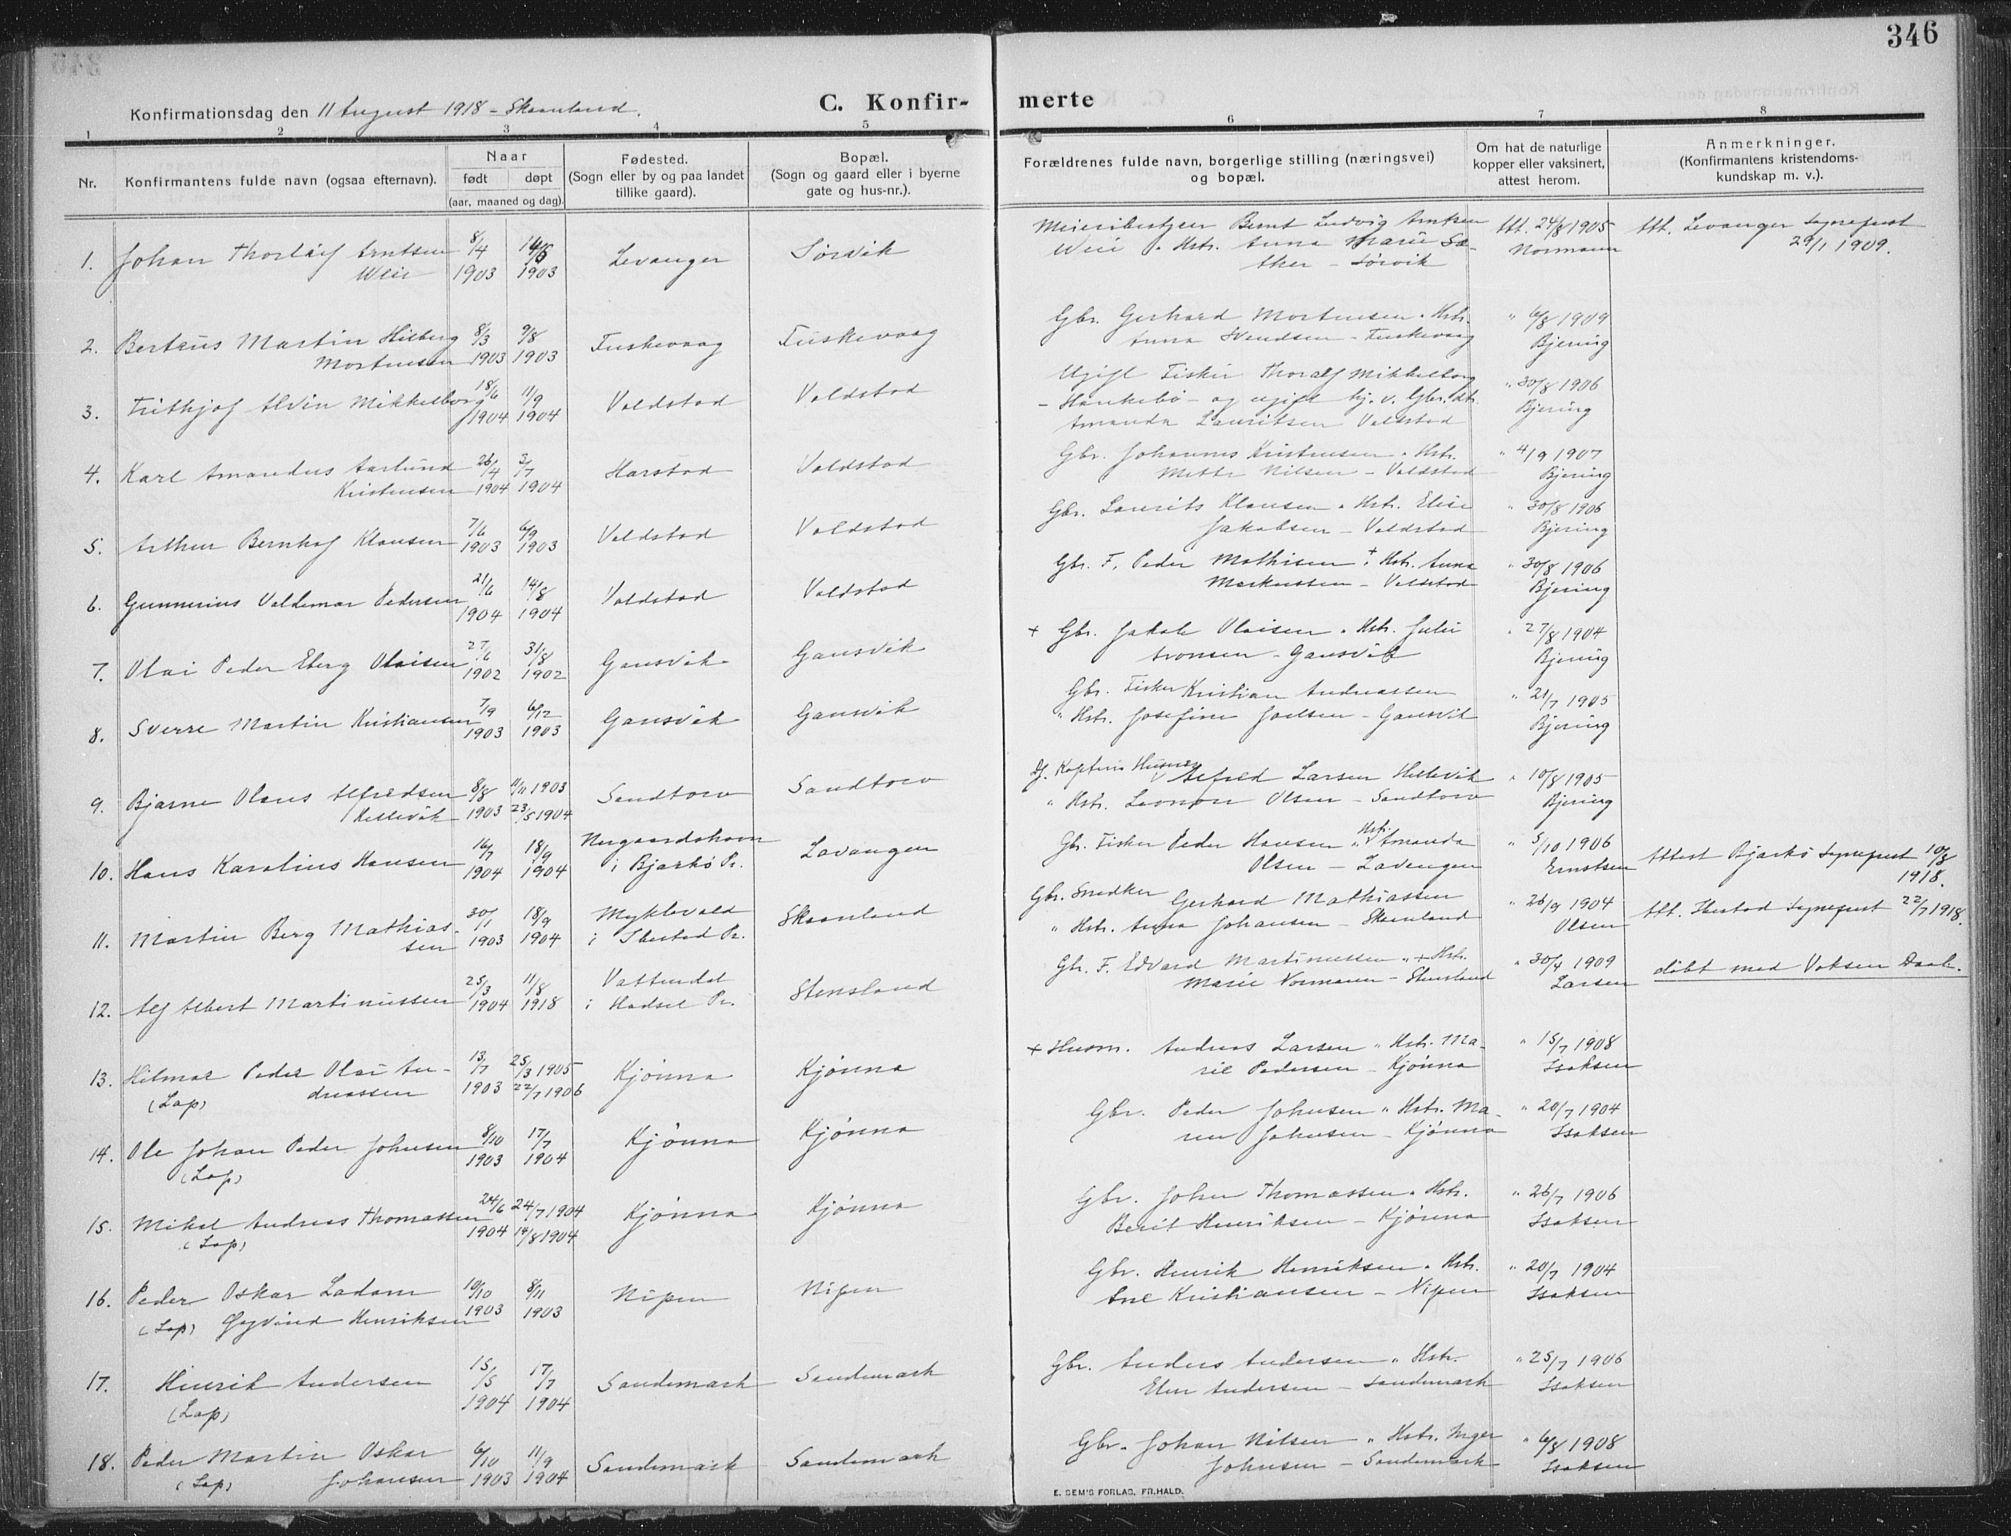 346
Konfirmationsdag den 11 August 1918 - Skaanland.
C. Konfir-
merte
1 2 3 4 5 6 7 8
Nr.
Konfirmantens fulde navn (ogsaa efternavn).
Naar
født døpt
(aar, maaned og dag).
Fødested.
(Sogn eller by og paa landet
tillike gaard).
Bopæl.
(Sogn og gaard eller i byerne
gate og hus-nr.).
Forældrenes fulde navn, borgerlige stilling (næringsvei)
og bopæl.
Om hat de naturlige
kopper eller vaksinert,
attest herom.
Anmerkninger.
(Konfirmantens kristendoms-
kundskap m. v.).
1. Johan Arntsen 8/4 Levanger Sørvik Bernt Ludvig Arntsen att. 24/8 1905 att. Levanger Sogneprest
Weie 1903 1903 Weie " Hstr. Anna Marie Sæ- Normann 29/1 1909.
ther - Sørvik
2. Martin 8/3 9/8 Fuskevaag Fuskevaag Gbr. Gerhard Mortensen " Hstr. " 6/8 1909
Mortensen 1903 1903 Anna - Fuskevaag Bjering
3. Frithjof Alvin Mikkelborg 18/6 11/9 Voldstad Voldstad Ugift Fisker Thoralf Mikkelborg " 30/8 1906
1904 1904 - og ugift Bjering
Amanda Lauritsen Voldstad
4. Karl Amandus 26/4 3/7 Harstad Voldstad Gbr. Johannes Kristensen " Hstr. " 4/9 1907
Kristensen 1904 1904 Mette Nilsen - Voldstad Bjering
5. Arthur Bernhof Klausen 7/6 6/9 Voldstad Voldstad Gbr. Laurits Klausen " Hstr. Elise " 30/8 1906
1903 1903 Jakobsen - Voldstad Bjering
6. Gunnerius Valdemar Pedersen 21/6 14/8 Voldstad Voldstad Gbr. F. Peder Mathisen + Hstr. Anna " 30/8 1906
1904 1904 Markussen - Voldstad Bjering
7. Olai Peder Eberg Olaisen 27/6 31/8 Gansvik Gansvik + Gbr. Jakob Olaisen " Hstr. Julie " 27/8 1904
1902 1902 Aronsen - Gansvik Bjering
8. Sverre Martin Kristiansen 7/9 6/12 Gansvik Gansvik Gbr. Fisker Kristian Andreassen " 21/7 1905
1903 1903 " Hstr. Josefine Joelsen - Gansvik Bjering
9. Bjarne Olaus Alfredsen 8/8 1903 Sandtorv Sandtorv Alfred Larsen Hellevik " 10/8 1905
Hellevik 1903 23/5 1904 " Hstr. Leonore Olsen - Sandtorv Bjering
10. Hans Karolius Hansen 16/7 18/9 Lavangen Gbr. Fisker Peder Hansen " Hstr. Amanda " 5/10 1906 Attest Bjarkø Sogneprest 10/8
1904 1904 i Bjarkø Pr. Olsen - Lavangen Ernstsen 1918.
11. Martin Berg Mathias- 30/1 18/9 Myklevold Skaanland Gbr. Snedker Gerhard Mathiassen " 26/9 1904 att. Ibestad Sogneprest 22/7 1918.
sen 1903 1904 i Ibestad Pr. " Hstr. Anna Johansen - Skaanland Olsen
12. Alf Albert Martinussen 25/3 11/8 Vattendal Stensland Gbr. F. Edvard Martinussen " + Hstr. " 30/4 1909 døbt med Voksen Daab.
1904 1918 i Hadsel Pr. Marie Normann - Stensland Larsen
13. Hilmar Peder Olai An- 13/7 25/3 1905 Kjønna Kjønna + Husm. Andreas Larsen " Hstr. Ma- " 15/7 1908
(Lap) dreassen 1903 22/7 1906 rie Pedersen - Kjønna Isaksen
14. Ole Johan Peder Johnsen 8/10 17/7 Kjønna Kjønna Gbr. Peder Johnsen " Hstr. Ma- " 20/7 1904
(Lap) 1903 1904 ren Johnsen - Kjønna Isaksen
15. Mikal Andreas Thomassen 24/6 24/7 1904 Kjønna Kjønna Gbr. Johan Thomassen " Hstr. " 26/7 1906
(Lap) 1904 14/8 1904 Berit Henriksen - Kjønna Isaksen
16. Peder Oskar Ladam 10/10 8/11 Nipen Nipen Gbr. Henrik Henriksen " Hstr. " 20/7 1904
(Lap) Øyvind Henriksen 1903 1903 Ane Kristiansen - Nipen Isaksen
17. Henrik Andersen 15/5 17/7 Sandemark Sandemark Gbr. Anders Andersen " Hstr. " 25/7 1906
(Lap) 1904 1904 Elen Andersen - Sandemark Isaksen
18. Peder Martin Oskar 6/10 11/9 Sandemark Sandemark Gbr. Johan Nilsen " Hstr. Inger " 6/8 1908
(Lap) Johansen 1903 1904 Johnsen - Sandemark Isaksen
E. SEM'S FORLAG, FR.HALD.